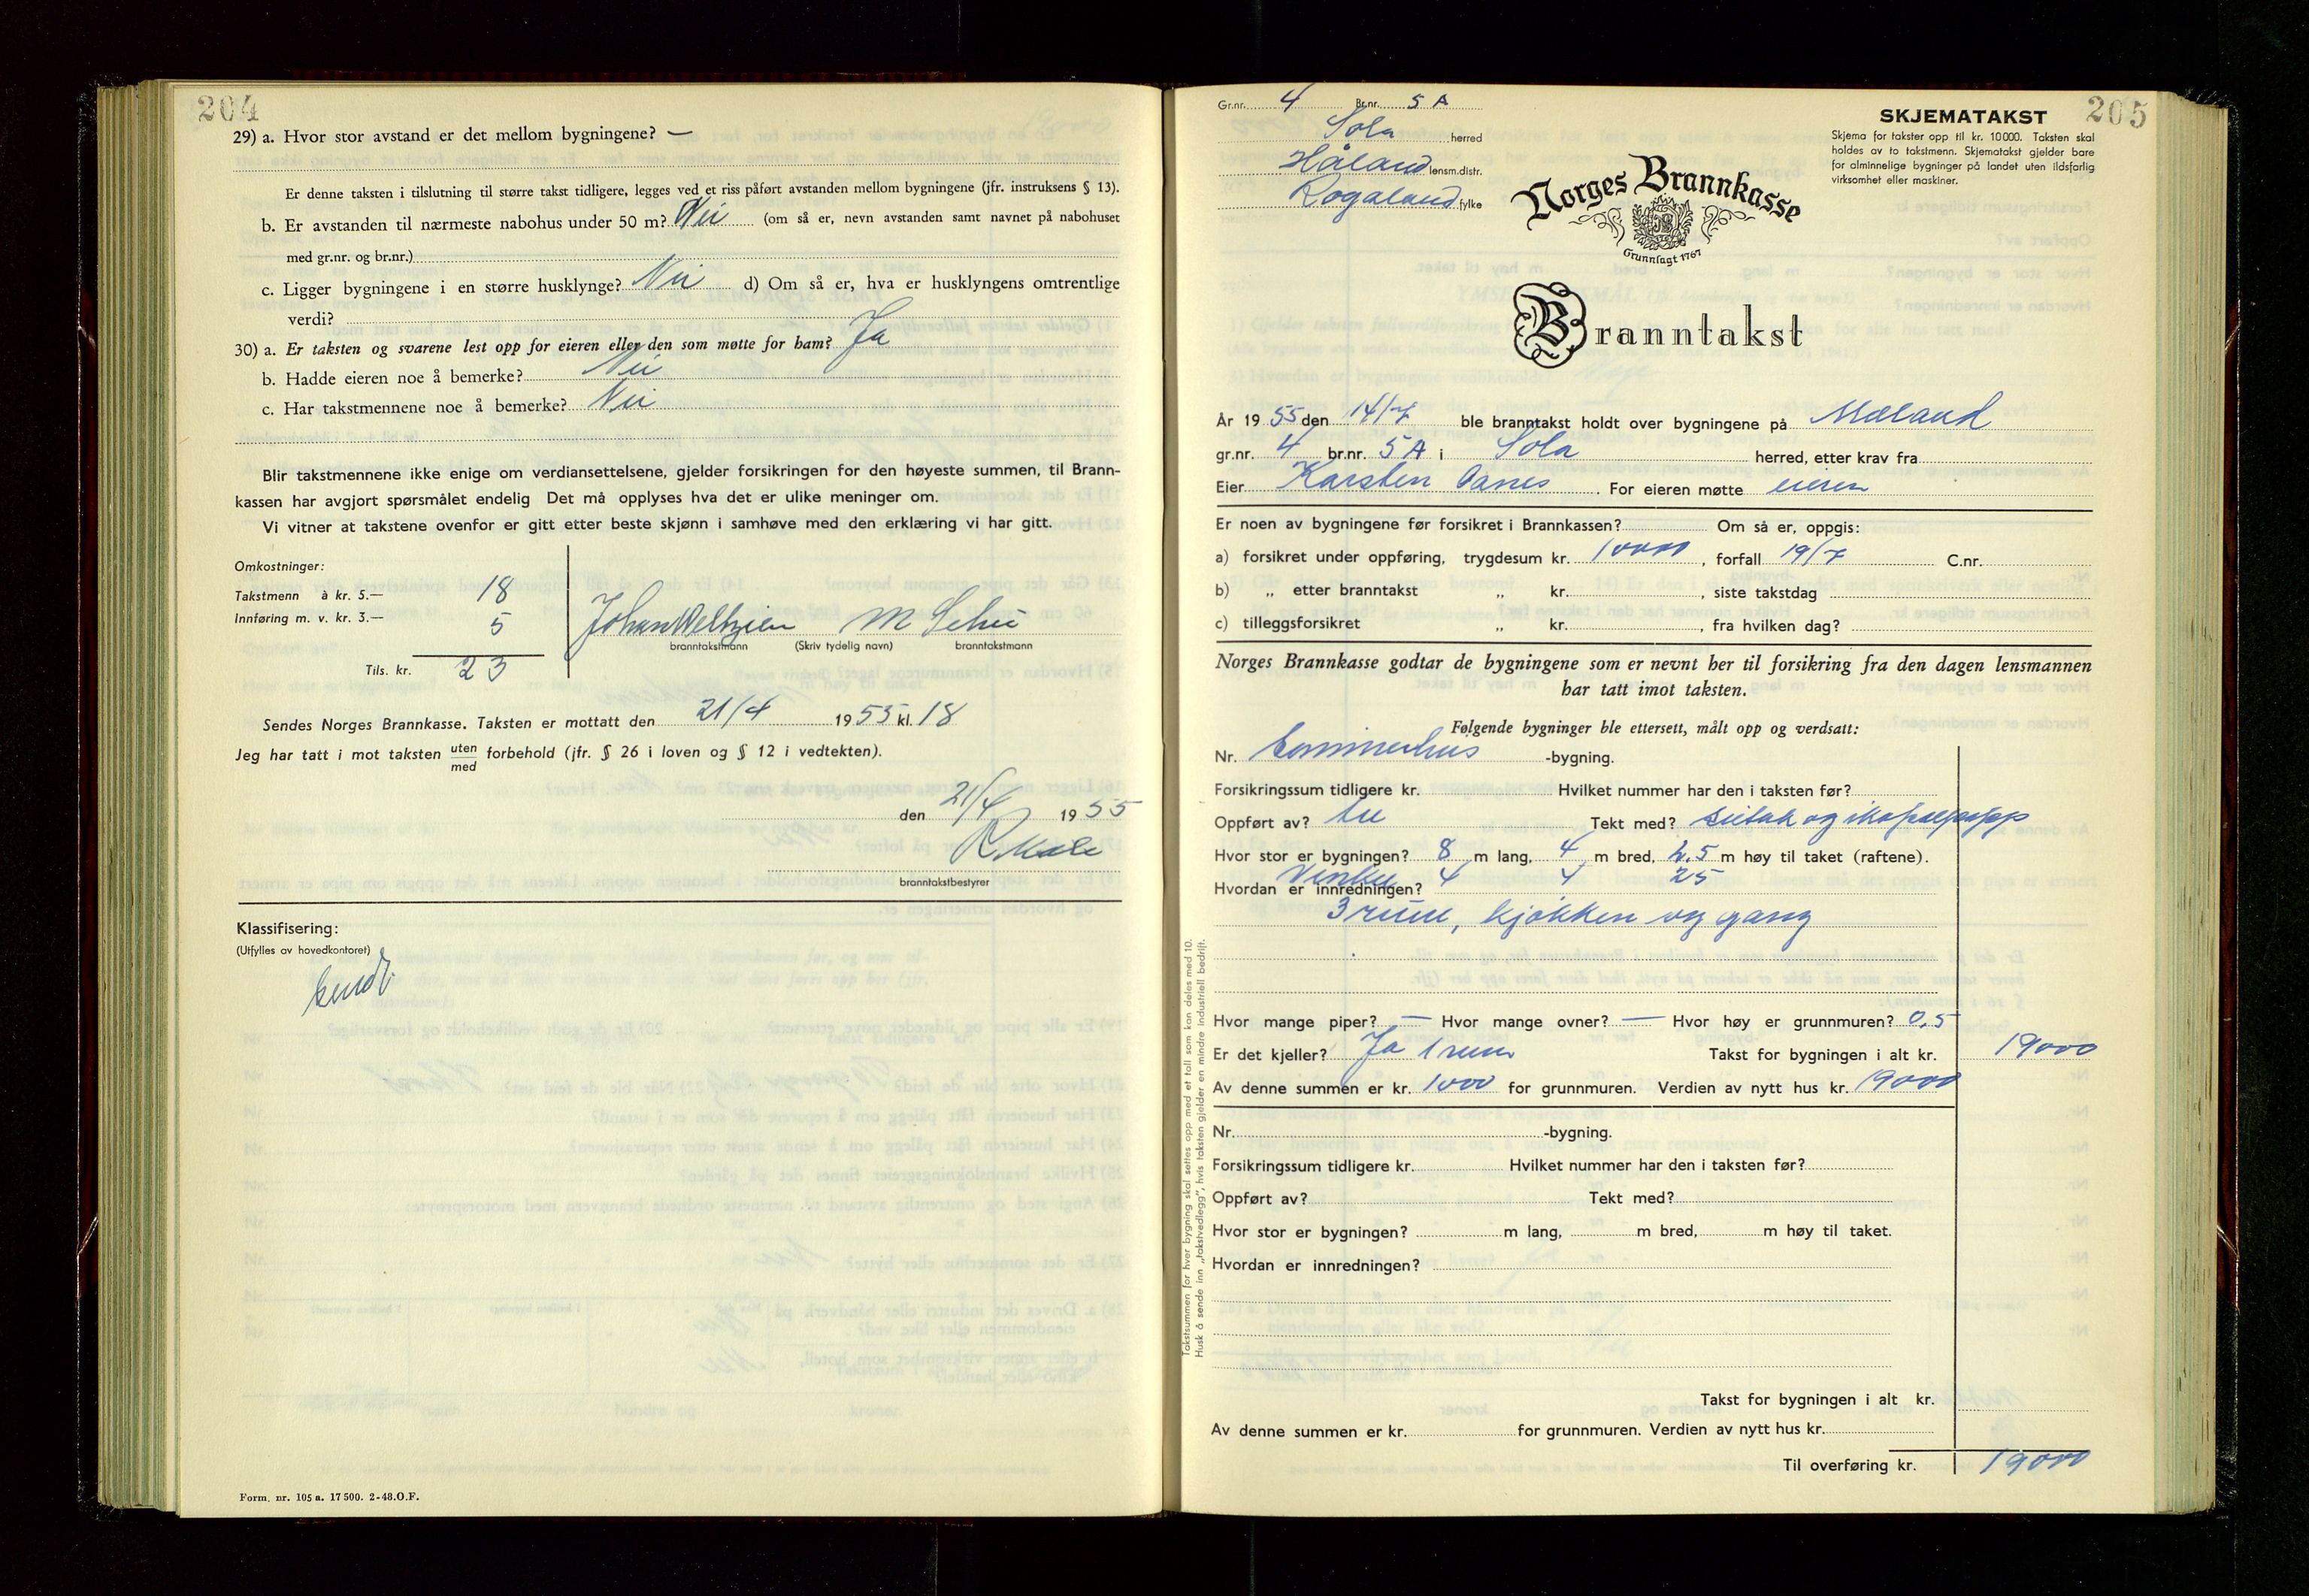 204
29) a. Hvor stor avstand er det mellom bygningene? —
Er denne taksten i tilslutning til større takst tidligere, legges ved et riss påført avstanden mellom bygningene (jfr. instruksens § 13).
b. Er avstanden til nærmeste nabohus under 50 m? Nei (om så er, nevn avstanden samt navnet på nabohuset
med gr.nr. og br.nr.)
c. Ligger bygningene i en større husklynge? Nei d) Om så er, hva er husklyngens omtrentlige
verdi?
30) a. Er taksten og svarene lest opp for eieren eller den som møtte for ham? Ja
b. Hadde eieren noe å bemerke? Nei
c. Har takstmennene noe å bemerke? Nei
Blir takstmennene ikke enige om verdiansettelsene, gjelder forsikringen for den høyeste summen, til Brann-
kassen har avgjort spørsmålet endelig Det må opplyses hva det er ulike meninger om.
Vi vitner at takstene ovenfor er gitt etter beste skjønn i samhøve med den erklæring vi har gitt.
Omkostninger:
Takstmenn à kr. 5.— 18
Innføring m. v. kr. 3.— 5
Johan Weltzien M
branntakstmann (Skriv tydelig navn) branntakstmann
Tils. kr. 23
Sendes Norges Brannkasse. Taksten er mottatt den 21/4 1955 kl. 18
Jeg har tatt i mot taksten uten forbehold (jfr. § 26 i loven og § 12 i vedtekten).
med
den 21/4 1955
branntakstbestyrer
Klassifisering:
(Utfylles av hovedkontoret)
Form. nr. 105 a. 17 500. 2-48.O.F.
Gr.nr. 4 Br.nr. 5 A
205
Sola herred
Håland lensm.distr.
Rogaland fylke
SKJEMATAKST
Skjema for takster opp til kr. 10000. Taksten skal
holdes av to takstmenn. Skjematakst gjelder bare
for alminnelige bygninger på landet uten ildsfarlig
virksomhet eller maskiner.
Norges Brannkasse
Grunnlagt 1767
Branntakst
År 1955 den 14/7 ble branntakst holdt over bygningene på Mæland
gr.nr. 4 br.nr. 5 A i Sola herred, etter krav fra
Eier Karsten For eieren møtte eieren
Er noen av bygningene før forsikret i Brannkassen? Om så er, oppgis:
a) forsikret under oppføring, trygdesum kr. 10000, forfall 19/7 C.nr.
b) „ etter branntakst „ kr. , siste takstdag
c) tilleggsforsikret „ kr. , fra hvilken dag?
Norges Brannkasse godtar de bygningene som er nevnt her til forsikring fra den dagen lensmannen
har tatt imot taksten.
Følgende bygninger ble ettersett, målt opp og verdsatt:
Nr. Sommerhus -bygning.
Forsikringssum tidligere kr. Hvilket nummer har den i taksten før?
Oppført av? tre Tekt med? og
Hvor stor er bygningen? 8 m lang, 4 m bred, 2,5 m høy til taket (raftene).
Vinkel 4 4 25
Hvordan er innredningen?
3 rum, kjøkken og gang
Hvor mange piper? — Hvor mange ovner? — Hvor høy er grunnmuren? 0,5
Er det kjeller? Ja 1 rum Takst for bygningen i alt kr. 19000
Av denne summen er kr. 1000 for grunnmuren. Verdien av nytt hus kr. 19000
Nr. -bygning.
Forsikringssum tidligere kr. Hvilket nummer har den i taksten før?
Oppført av? Tekt med?
Hvor stor er bygningen? m lang, m bred, m høy til taket.
Hvordan er innredningen?
Takst for bygningen i alt kr.
Av denne summen er kr. for grunnmuren. Verdien av nytt hus kr.
Til overføring kr. 19000
Takstsummen for hver bygning skal settes opp med et tall som kan deles med 10.
Husk å sende inn „takstvedlegg", hvis taksten gjelder en mindre industriell bedrift.